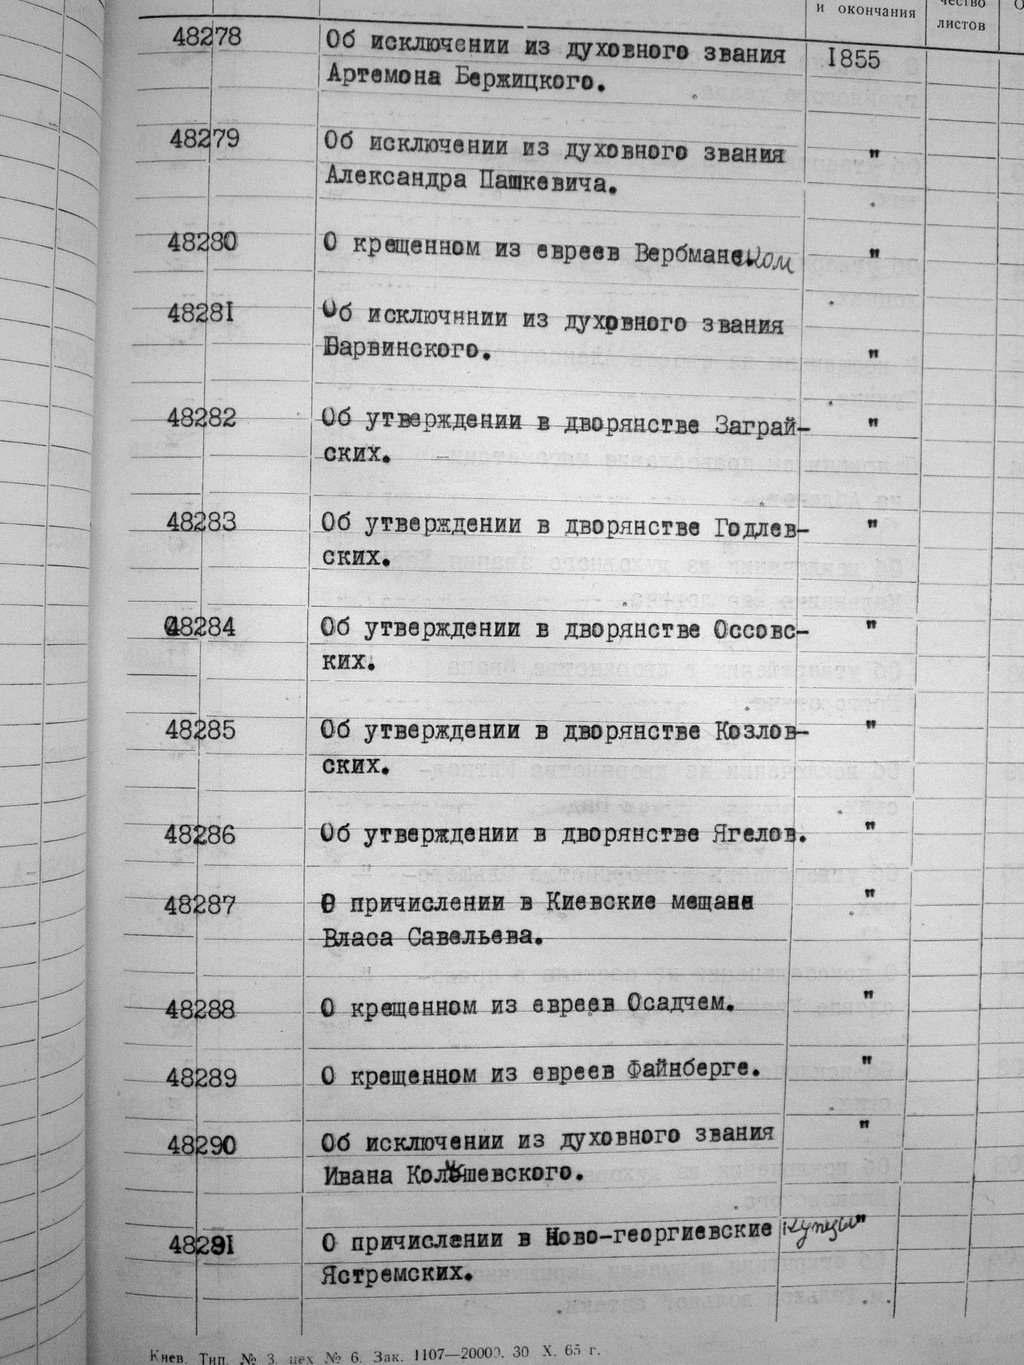 и окончания
чество
листов
48278 Об исключении из духовного звания 1855
Артемона Бержицкого.
48279 Об исключении из духовного звания "
Александра Пашкевича.
48280 О крещенном из евреев Вербманском "
48281 Об исключнии из духовного звания
Барвинского. "
48282 Об утверждении в дворянстве Заграй- "
ских.
48283 Об утверждении в дворянстве Годлев- "
ских.
48284 Об утверждении в дворянстве Оссовс- "
ких.
48285 Об утверждении в дворянстве Козлов- "
ских.
48286 Об утверждении в дворянстве Ягелов. "
48287 О причислении в Киевские мещане "
Власа Савельева.
48288 О крещенном из евреев Осадчем. "
48289 О крещенном из евреев Файнберге. "
48290 Об исключении из духовного звания "
Ивана шевского.
48291 О причислении в Ново-георгиевские купцы "
Ястремских.
Киев. Тип. № 3. цех № 6. Зак. 1107—20000. 30 X. 65 г.